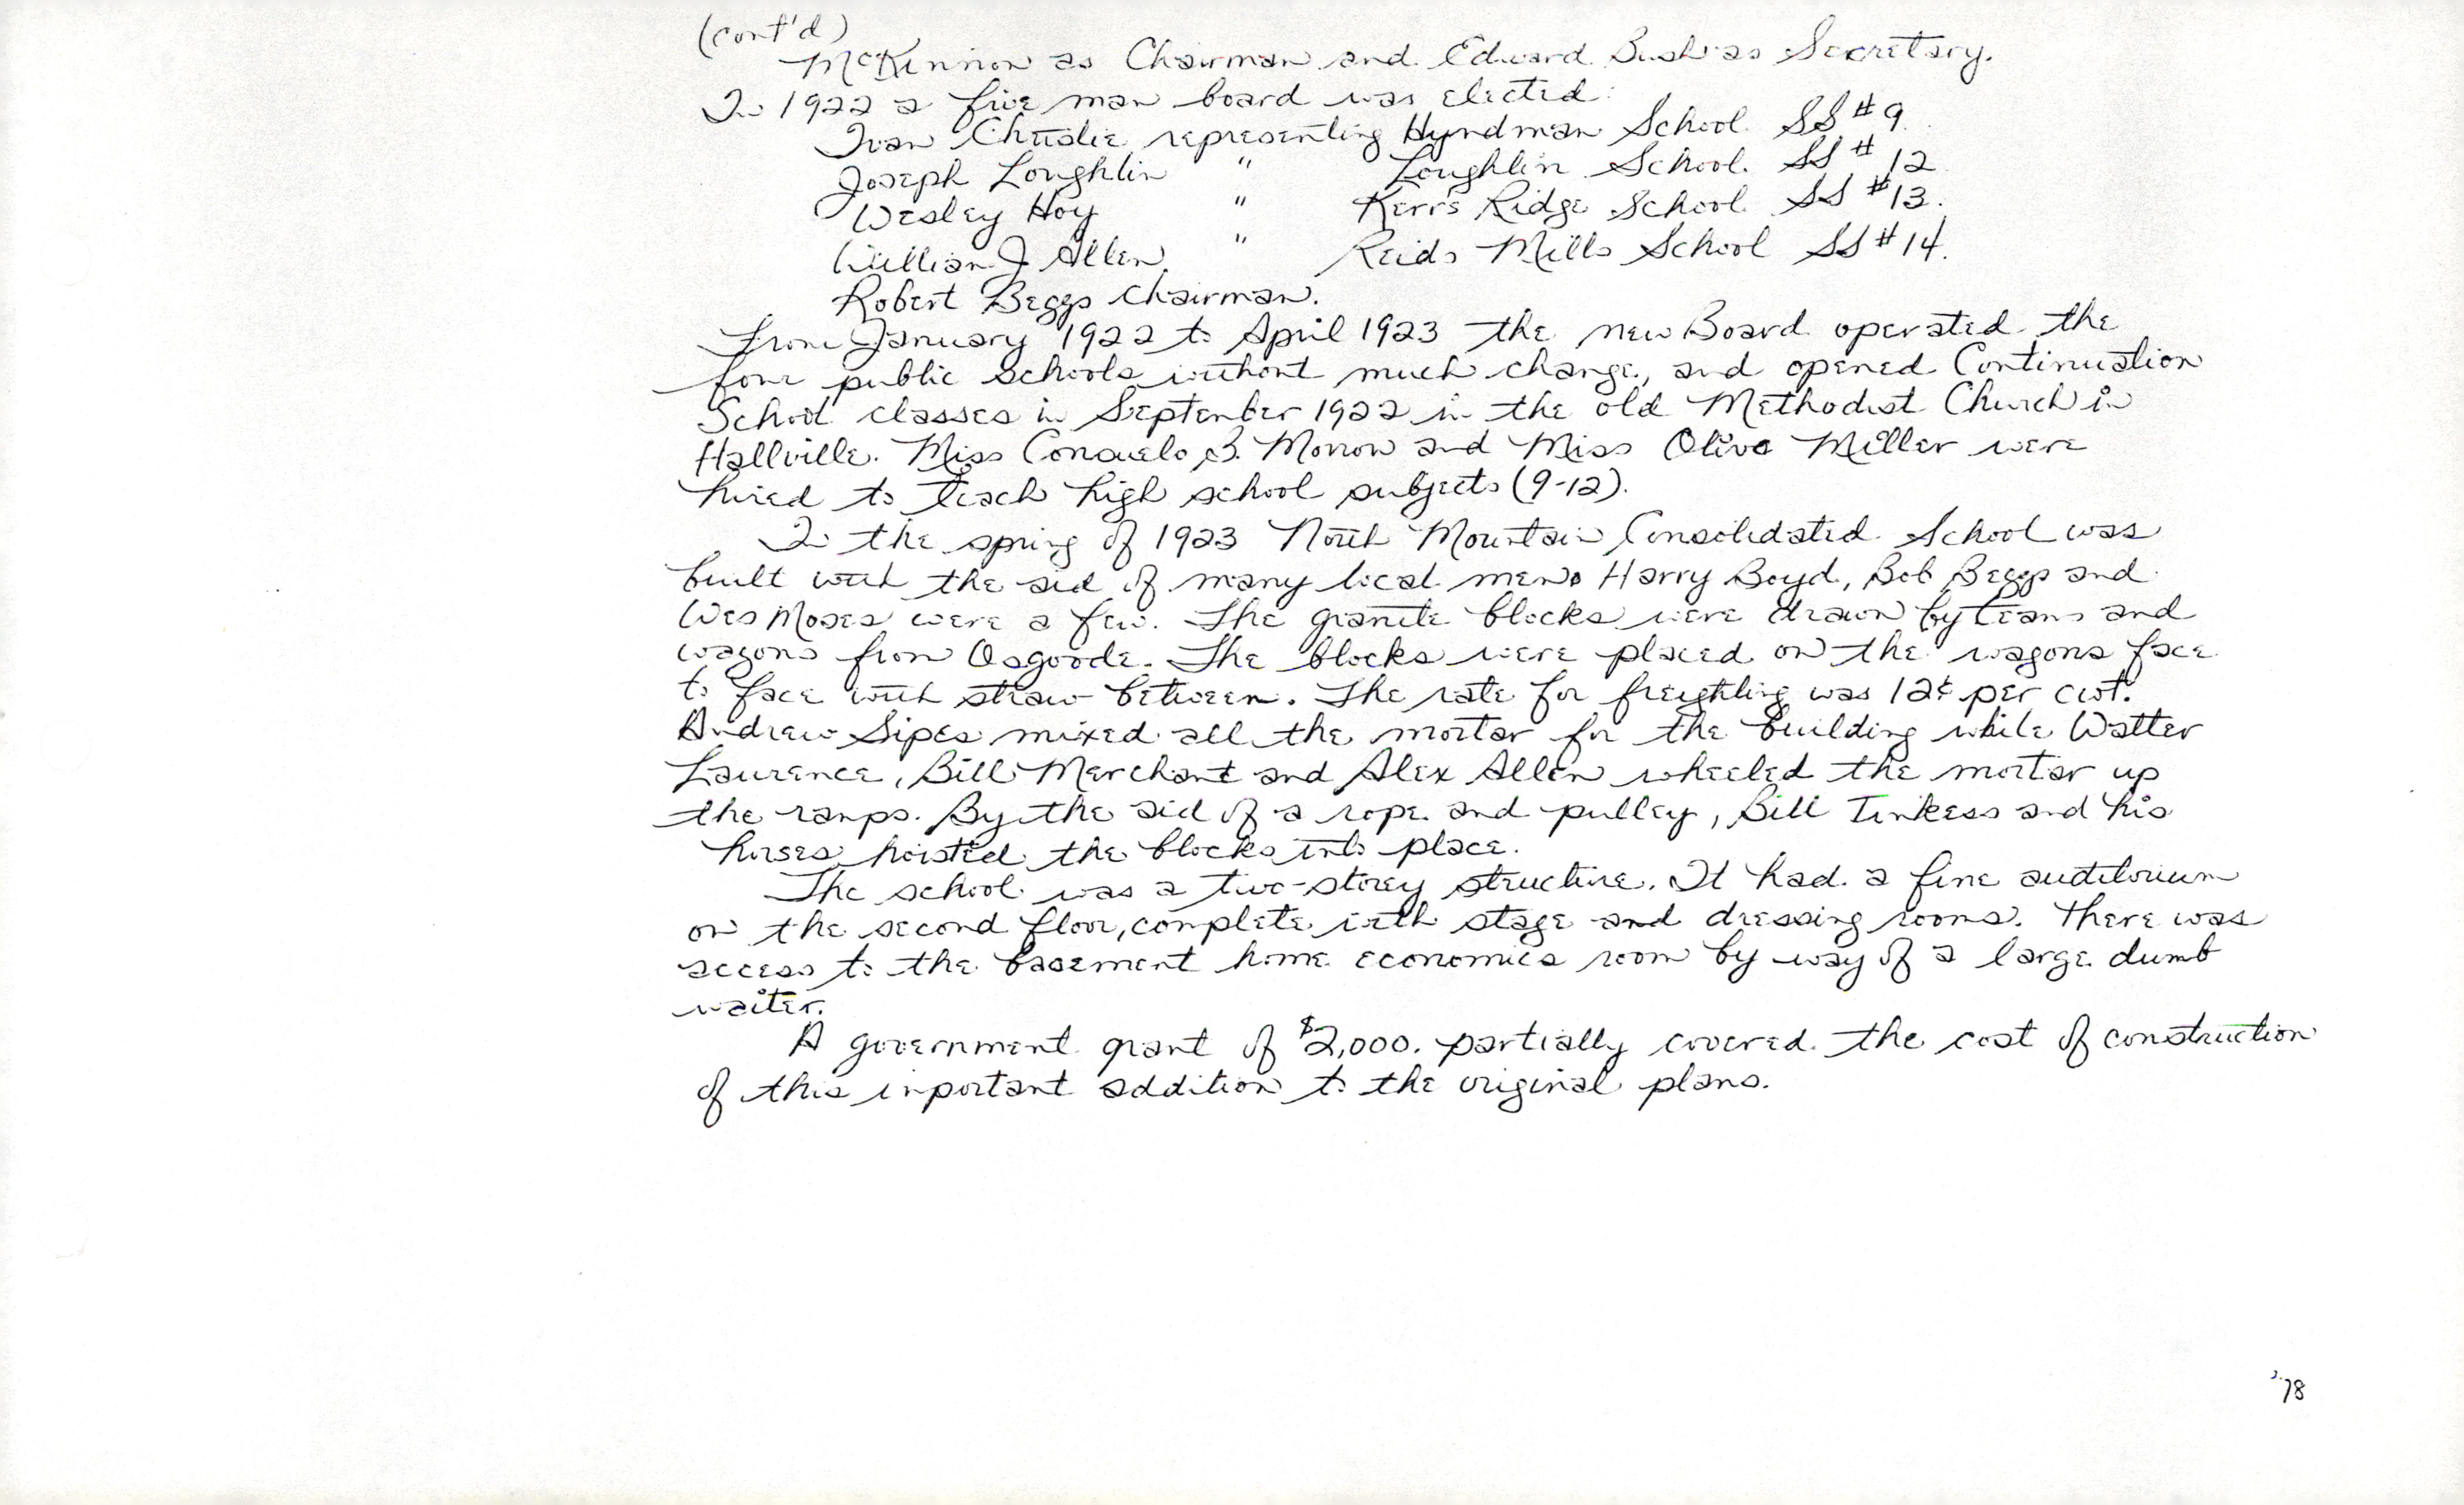 (cont'd)
McKinnon as Chairman and Edward Bush as Secretary.
In 1922 a five man board was elected:
Ivan Christie representing Hyndman School SS #9.
Joseph Loughlin " Loughlin School. SS # 12
Wesley Hoy " Kerrs Ridge School SS #13.
William J Allen " Reids Mills School SS #14.
Robert Beggs Chairman.
From January 1922 to April 1923 the new Board operated the
four public schools without much change, and opened Continuation
School classes in September 1922 in the old Methodist Church in
Hallville. Miss Consuelo B. Morrow and Miss Olive Miller were
hired to teach high school subjects (9-12).
In the spring of 1923 North Mountain Consolidated School was
built with the aid of many local men. Harry Boyd, Bob Beggs and
Wes Moses were a few. The granite blocks were drawn by teams and
wagons from Osgoode. The blocks were placed on the wagons face
to face with straw between. The rate for freighting was 12¢ per cwt.
Andrew Sipes mixed all the mortar for the building while Walter
Laurence, Bill Merchant and Alex Allen wheeled the mortar up
the ramps. By the aid of a rope and pulley, Bill Tinkess and his
horses hoisted the blocks into place.
The school was a two-storey structure. It had a fine auditorium
on the second floor, complete with stage and dressing rooms. There was
access to the basement home economics room by way of a large dumb
waiter.
A government grant of $2,000. partially covered the cost of construction
of this important addition to the original plans.
78